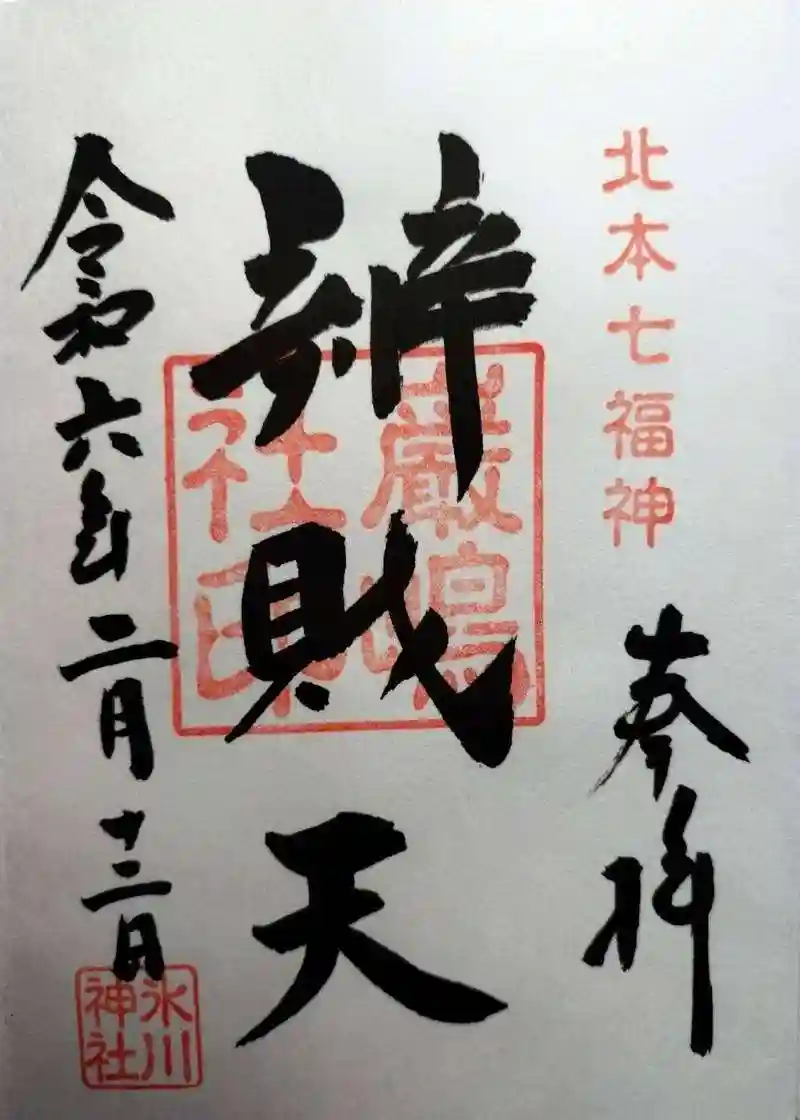 北本七福神
奉拝
辨財天
巌嶋
社印
令和六年二月十二日
氷川
神社